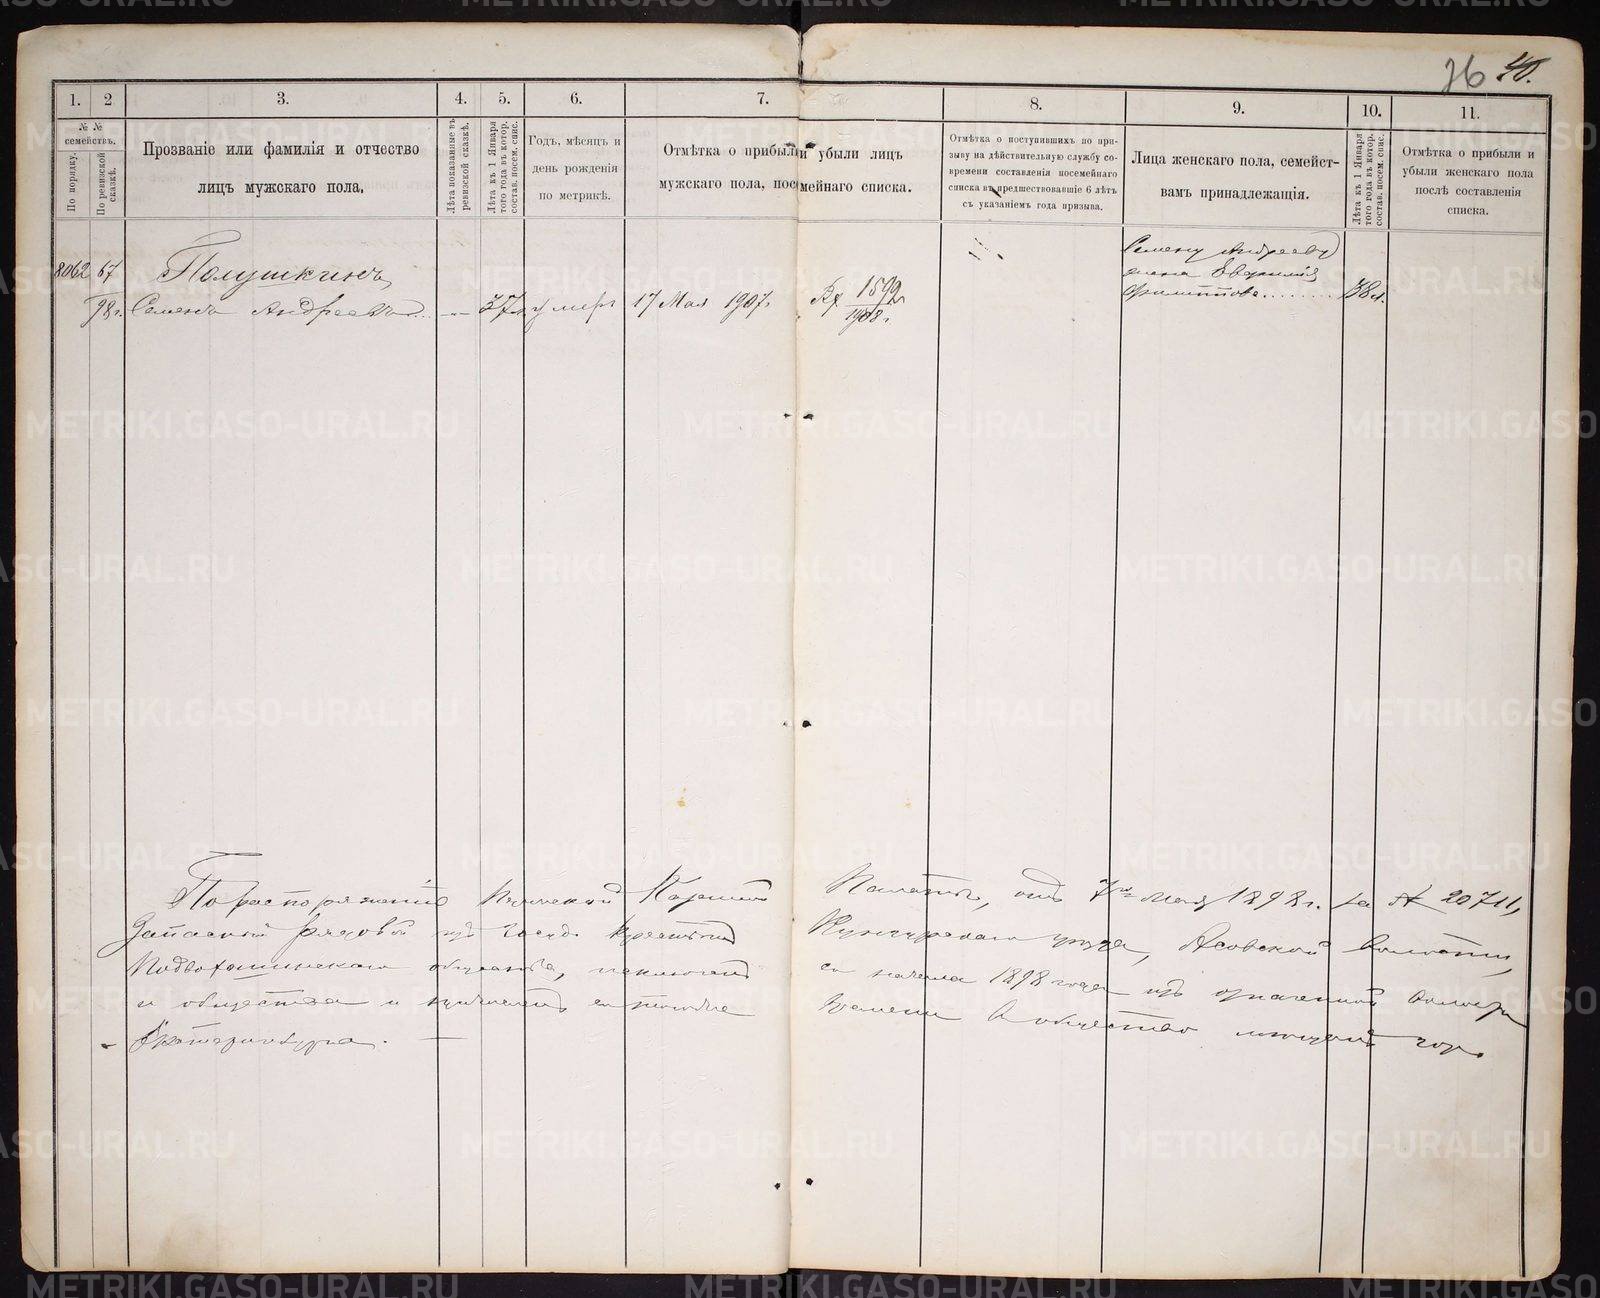 36 40.
1. 2 3. 4. 5. 6. 7. 8. 9. 10. 11.
№ № семействъ.
По порядку.
По ревизской сказкѣ.
Прозваніе или фамилія и отчество
лицъ мужскаго пола.
Лѣта показанныя въ
ревизской сказкѣ.
Лѣта къ 1 Января
того года въ котор.
состав. посем. спис.
Годъ, мѣсяцъ и
день рожденія
по метрикѣ.
Отмѣтка о прибыли и убыли лицъ
мужскаго пола, посемейнаго списка.
Отмѣтка о поступившихъ по при-
зыву на дѣйствительную службу со-
времени составленія посемейнаго
списка въ предшествовавшіе 6 лѣтъ
съ указаніемъ года призыва.
Лица женскаго пола, семейст-
вамъ принадлежащія.
Лѣта къ 1 Января
того года въ котор.
состав. посем. спис.
Отмѣтка о прибыли и
убыли женскаго пола
послѣ составленія
списка.
8062 67 Полушкинъ
98 г. Семенъ Андреевъ 37 л. умеръ 17 Мая 1907 г. 1592
1908 г.
Семену Андрееву
жена Евдокія
Филиппова 38 л.
По распоряженію Пермской Казенной Палаты, отъ 7го Мая 1898 г. за № 20711,
Запасный рядовой изъ госуд. крестьянъ Кунгурскаго уѣзда, Асовской волости,
общества, исключенъ съ начала 1898 года изъ означенной волости
и общества и причисленъ съ того же времени въ общество мѣщанъ гор.
Екатеринбурга.
METRIKI.GASO-URAL.RU